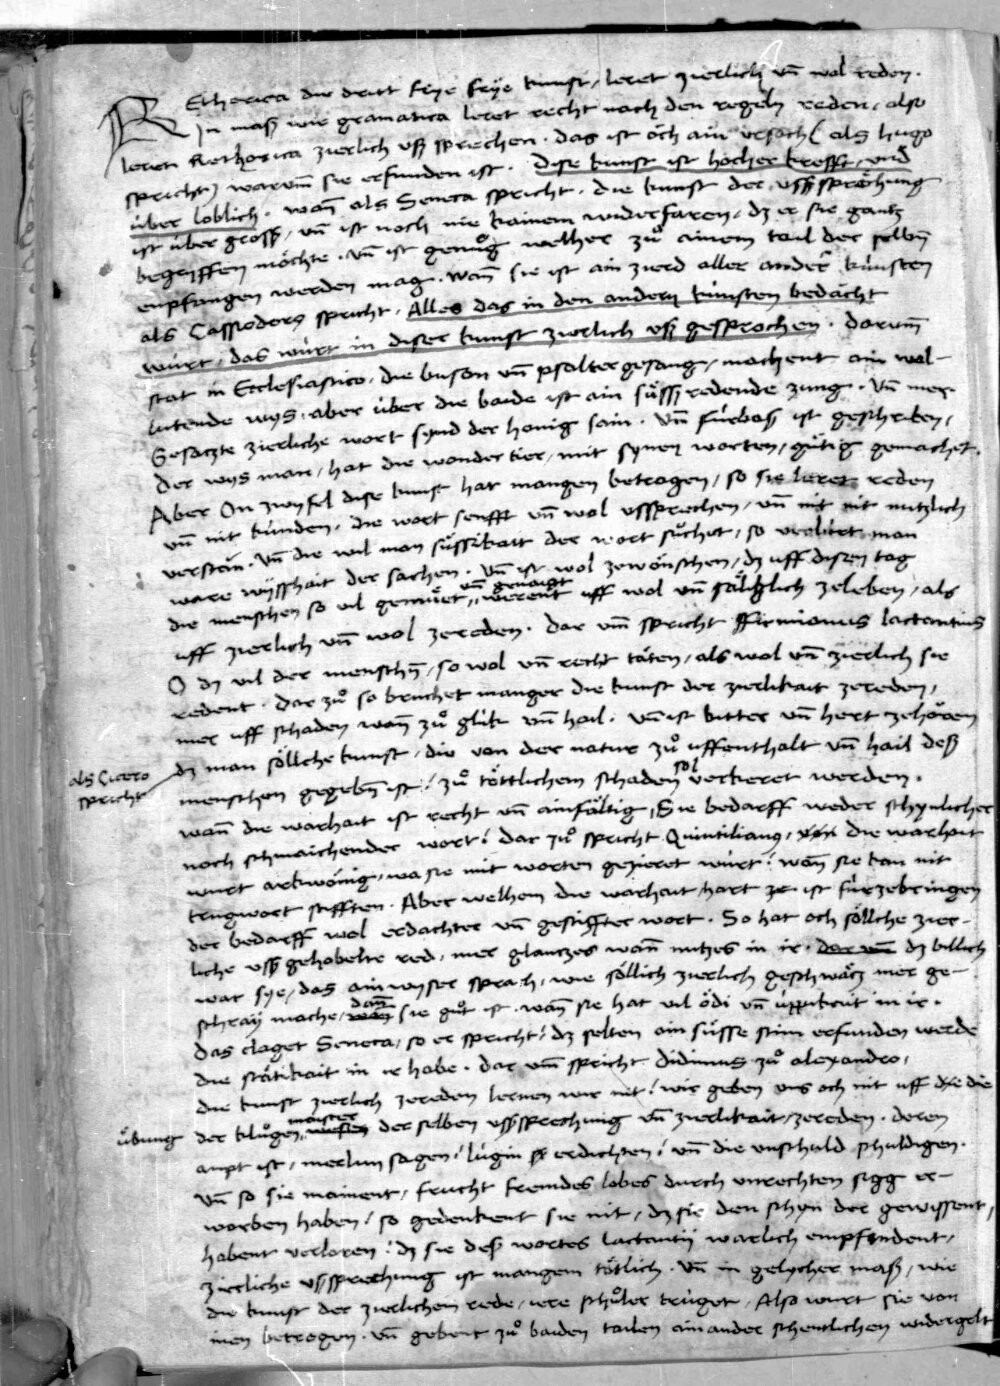 Rethorica die dritt frye frÿe kunst / leret zierlich vn̄ wol reden .
In mass wir gramatica leret recht nach den regeln reden / also
leren Rethorica zierlich vsß sprechen . das ist och ain vrsach ( als hugo
spricht ) warum̄ sie erfunden ist . Dise kunst ist hocher krefft / und
über loblich . wan̄ als Seneca spricht . die kunst der vsßsprächung
ist über gross / vn̄ ist noch nie kainem widerfaren / dz er sie gantz
begryffen möchte . vn̄ ist genůg welher zů ainem tail der selbn̄
enpfangen werden mag . wan̄ sie ist ain zierd aller ander künsten
als Cassioderꝰ spricht . Alles das in den andern künsten bedächt
würt / das würt in diser kunst zierlich vsß gesprochen . Darum̄
stat in Ecclesiastico / die buson vn̄ psalter gesang / machent ain wol-
lutende wys / aber über die baide ist ain süssß redende zung . Vn̄ mer
Gesatzte zierliche wort synd der honig sain . Vn̄ fürbass ist geschriben /
Der wys man / hat die wonder tier / mit synen worten / gütig gemachet .
Aber On zwyfel dise kunst hat mangen betrogen / so sie leret reden
vn̄ nit künden / die wort senfft vn̄ wol vssprechen / vn̄ mit nit nutzlich
verstän . Vn̄ die wil man süssikait der wort sůchet / so verlürt man
ware wyssßhait der sachen . Vn̄ ist wol zewönschen / dz uff disen tag
die menschen so vil gemüet vn̄ genaigt werent uff wol vn̄ sälklich zeleben / als
uff zierlich vn̄ wol zereden . Dar vm̄ spricht firmianus lactantius
O dz vil der menschn̄ / so wol vn̄ recht täten / als wol vn̄ zierlich sie
redent . Dar zů so bruchet manger die kunst der zierlikait zereden /
mer uff schaden wan̄ zů glük vn̄ hail . Vn̄ ist bitter vn̄ hert zehören
als Cicero spricht
dz man söllche kunst / die von der natur zů uffenthalt vn̄ hail deß
menschen gegebn̄ ist / zů töttlichem schaden sol verkeret werden .
wan̄ die warhait ist recht vn̄ ainfältig / Sie bedarff weder schynlicher
noch schmaichender wort / Dar zů spricht Quintilianꝰ / die warhait
wurt arkwönig / wa sie mit worten gezieret würt / wan̄ sie kan nit
trugwort stifften . Aber welhem die warhait hart ze ist fürzebringen
der bedarff wol erdachter vn̄ gestiffter wort . So hat och söllche zier-
liche vsß gehobelte red / mer glanczes wan̄ nutzes in ir . dar vm̄ dz billich
war sye / das ain wyser sprach / wie söllich zierlich geschwätz mer ge-
schraÿ mache / dan̄ sie gůt ist . wan̄ sie hat vil ödi vn̄ üppikait in ir .
Das claget Seneca / so er spricht / dz selten ain süsse stim erfunden werde
die stätikait in ir habe . Dar vm̄ spricht Didimus zů alexandro /
die kunst zierlich zereden lernen wir nit / wir geben vns och nit uff die
übung der klůgen maister der selben vsßsprechung vn̄ zierlikait / zereden . deren
ampt ist / merlun sagen / lügin erdichten / vn̄ die vnschuld schuldigen .
Vn̄ so sie mainent / frucht fremdes lobes durch vnrechten sigg er-
worben haben / so gedenkent sie nit / dz sie den schyn der gewissent /
habent verloren / dz sie deß wortes lactantii warlich empfindent /
Zierliche vsßsprechung ist mangem tötlich . Vn̄ in gelycher mass / wie
die kunst der zierlichen rede / iere schůler trüget / Also wurt sie von
inen betrogen . vn̄ gebent zů baiden tailen ainander schentlichen widergelt